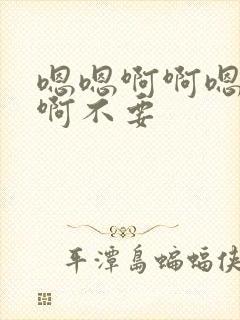 嗯嗯啊啊嗯
啊不要
平潭岛蝙蝠侠